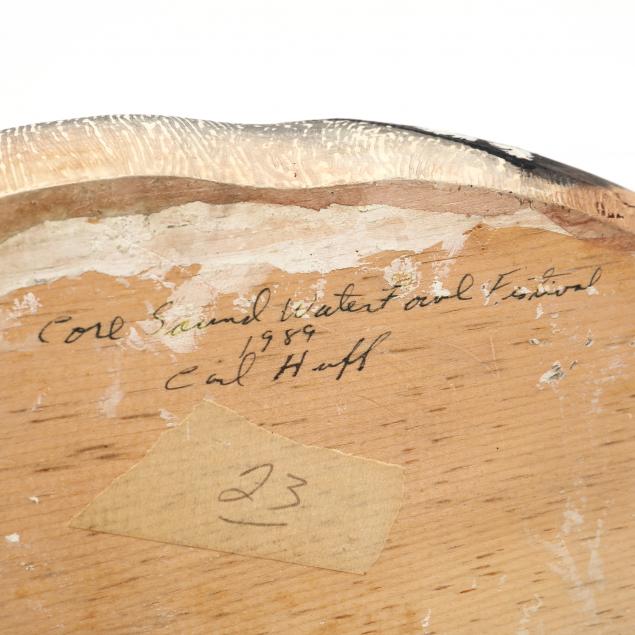 Core Sound WaterFowl Festival
1989
Carl Huff
23